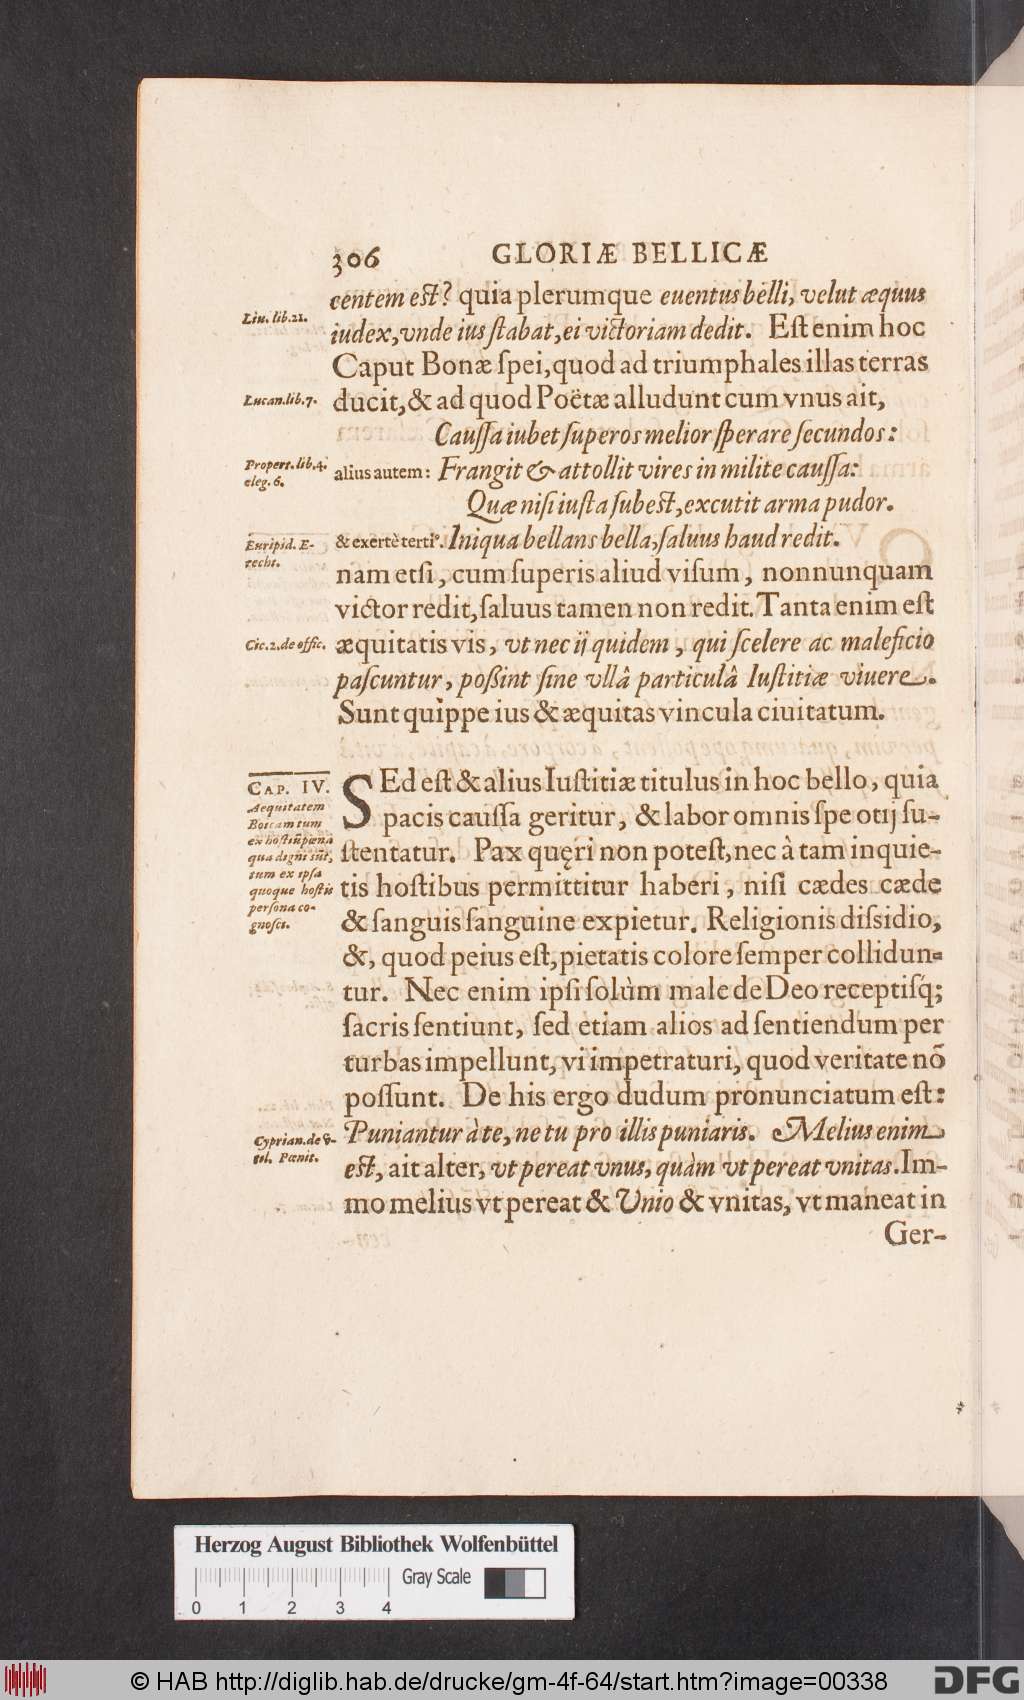 306 GLORIÆ BELLICÆ
centem est? quia plerumque euentus belli, velut æquus
Liu. lib. 21.
iudex, vnde ius ſtabat, ei victoriam dedit. Eſt enim hoc
Caput Bonæ ſpei, quod ad triumphales illas terras
Lucan. lib. 7.
ducit, & ad quod Poëtæ alludunt cum vnus ait,
Cauſſa iubet ſuperos melior ſperare ſecundos:
Propert. lib. 4.
eleg. 6.
alius autem: Frangit & attollit vires in milite cauſſa:
Quæ niſi iuſta ſubest, excutit arma pudor.
Euripid. E-
recht.
& exertè tertiꝰ. Iniqua bellans bella, ſaluus haud redit.
nam etſi, cum ſuperis aliud viſum, nonnunquam
victor redit, ſaluus tamen non redit. Tanta enim eſt
Cic. 2. de offic.
æquitatis vis, vt nec ij quidem, qui ſcelere ac maleficio
paſcuntur, poßint ſine vllâ particulâ Iuſtitiæ viuere.
Sunt quippe ius & æquitas vincula ciuitatum.
CAP. IV.
Aequitatem
Boicam tum
ex hoſtiũ pœna
qua digni sũt,
tum ex ipſa
quoque hoſtis
perſona co-
gnoſci.
SEd eſt & alius Iuſtitiæ titulus in hoc bello, quia
pacis cauſſa geritur, & labor omnis ſpe otij ſu-
ſtentatur. Pax quęri non poteſt, nec à tam inquie-
tis hoſtibus permittitur haberi, niſi cædes cæde
& ſanguis ſanguine expietur. Religionis diſsidio,
&, quod peius eſt, pietatis colore ſemper collidun-
tur. Nec enim ipſi ſolùm male de Deo receptiſq́;
ſacris ſentiunt, ſed etiam alios ad ſentiendum per
turbas impellunt, vi impetraturi, quod veritate nõ
poſſunt. De his ergo dudum pronunciatum eſt:
Cyprian. de 8-
tol. Pœnit.
Puniantur à te, ne tu pro illis puniaris. Melius enim
est, ait alter, vt pereat vnus, quàm vt pereat vnitas. Im-
mo melius vt pereat & Vnio & vnitas, vt maneat in
Ger-
Herzog August Bibliothek Wolfenbüttel
Gray Scale
0 1 2 3 4
© HAB http://diglib.hab.de/drucke/gm-4f-64/start.htm?image=00338
DFG